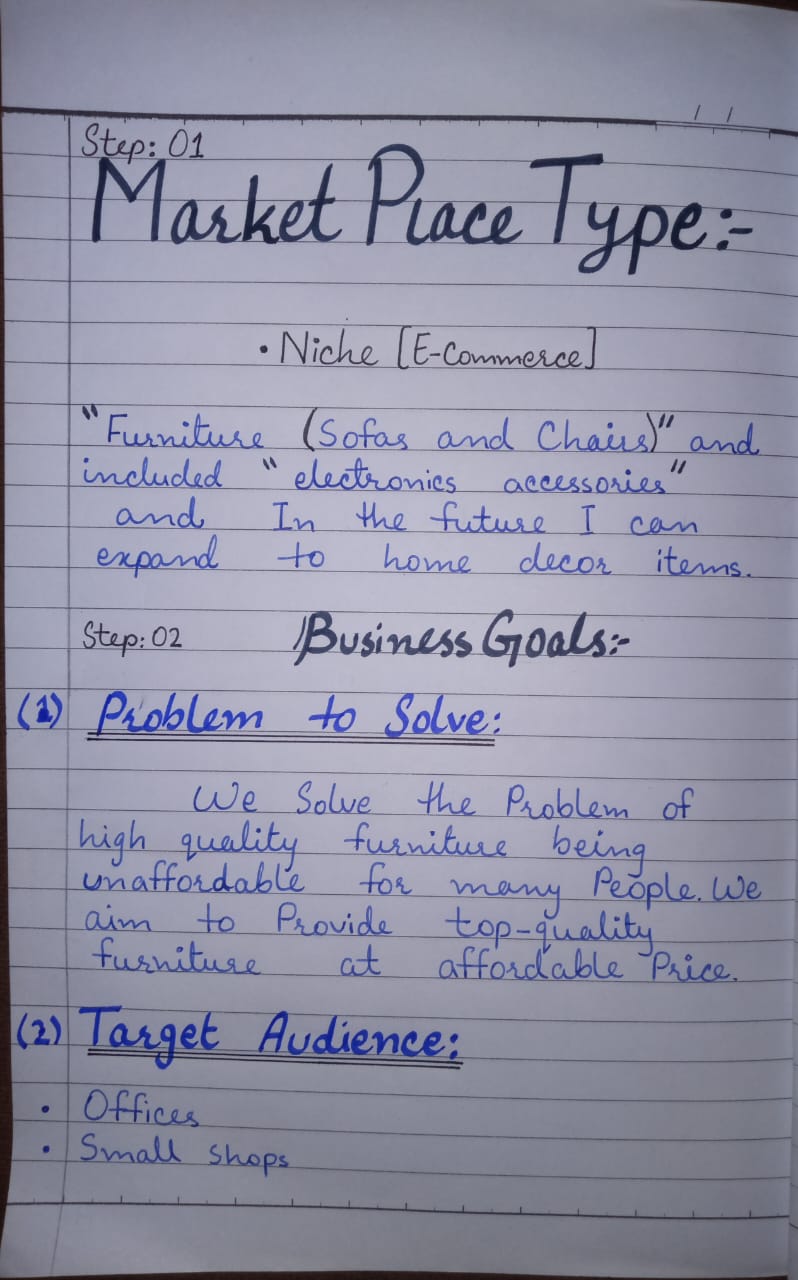 Step: 01
Market Place Type:-
• Niche [E-Commerce]
"Furniture (Sofas and Chairs)" and
included "electronics accessories"
and In the future I can
expand to home decor items.
Step: 02 Business Goals:-
(1) Problem to Solve:
We Solve the Problem of
high quality furniture being
unaffordable for many People. We
aim to Provide top-quality
furniture at affordable Price.
(2) Target Audience:
• Offices
• Small shops